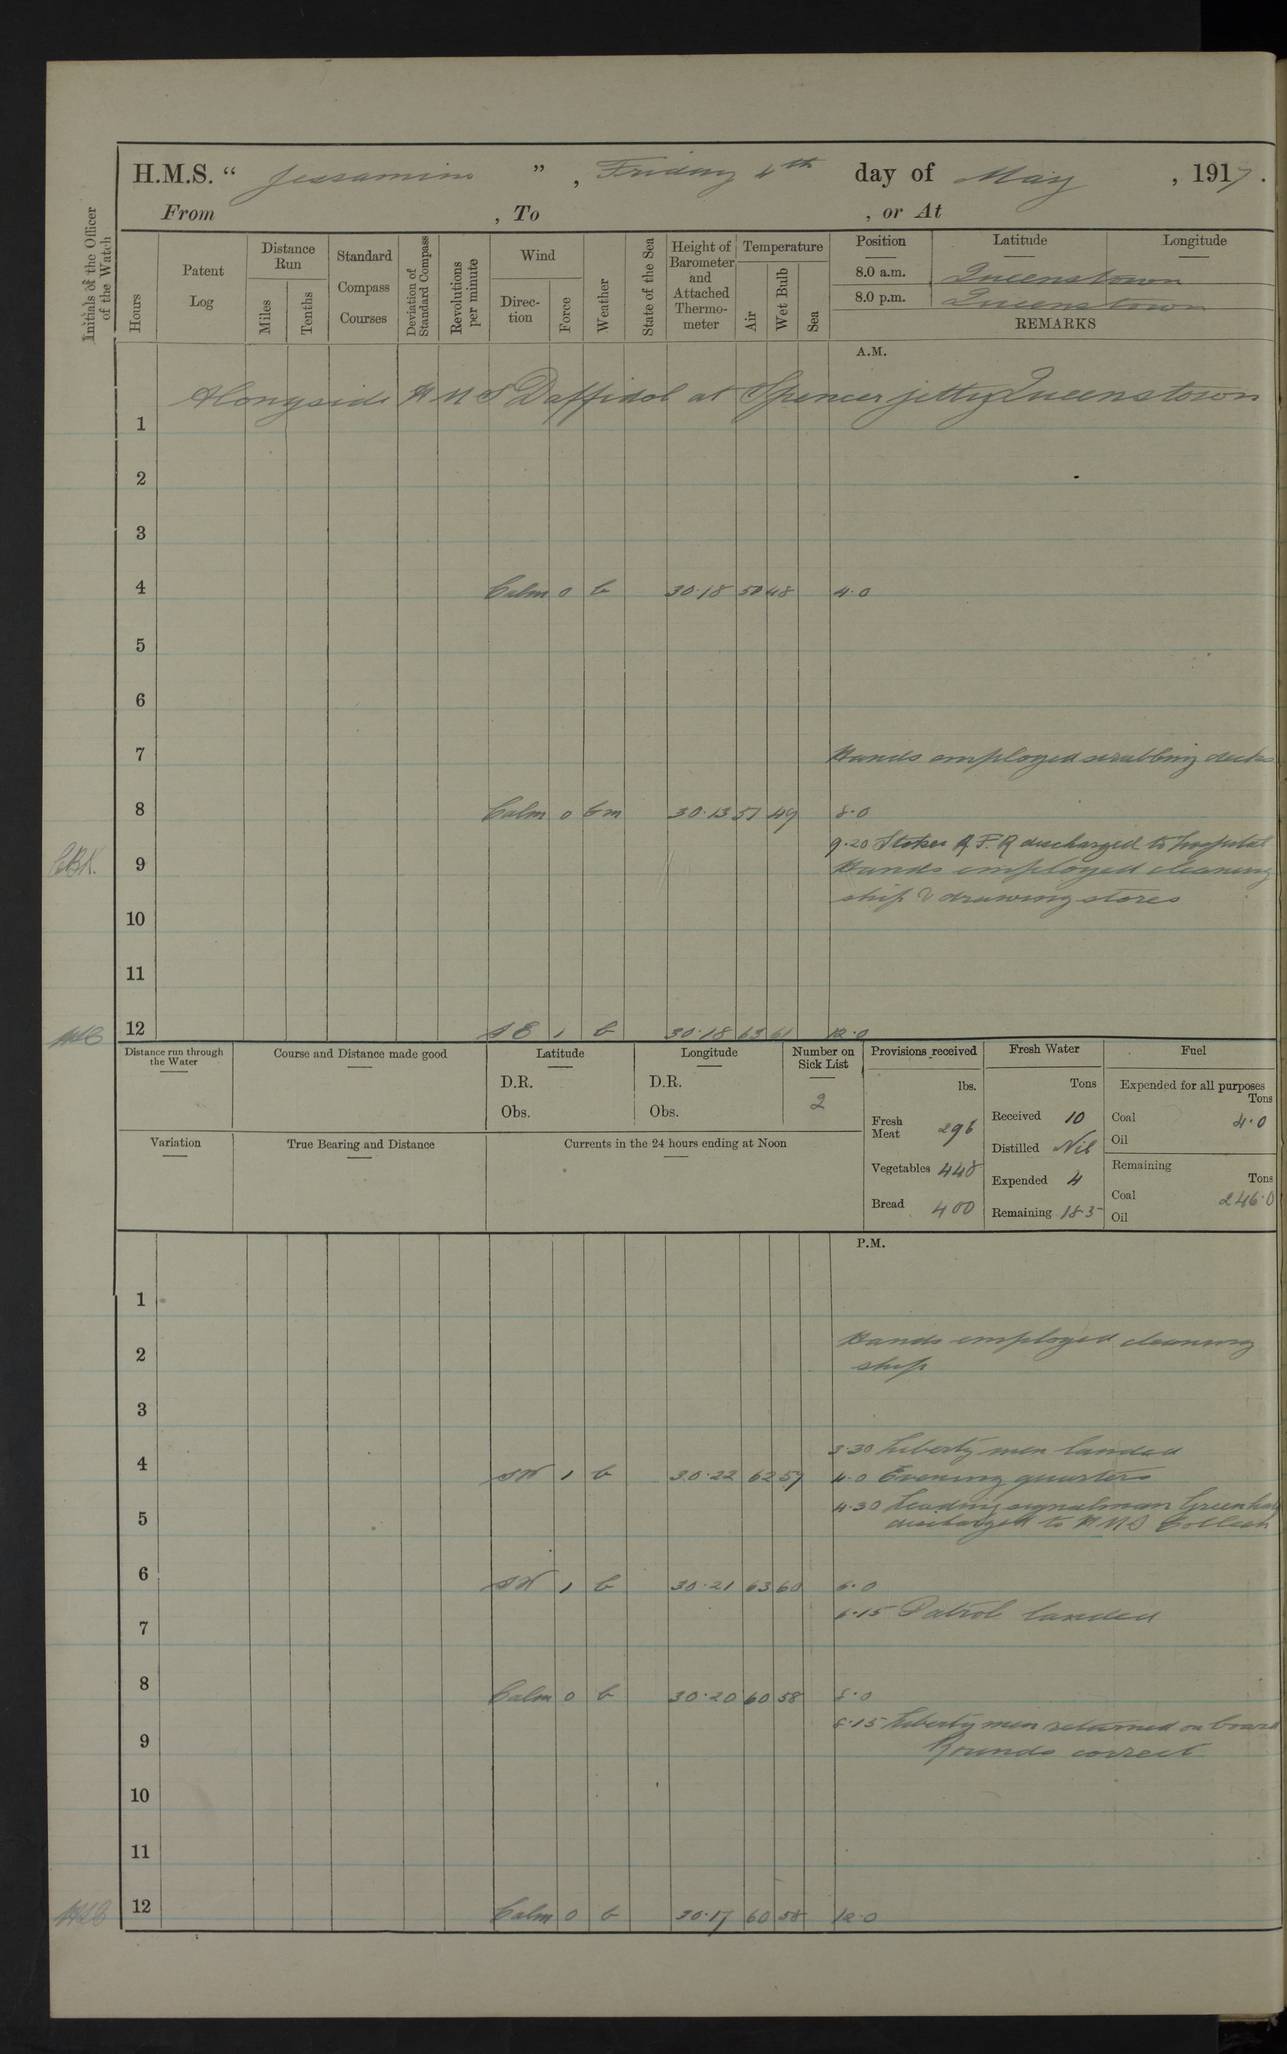 H.M.S. “ Jessamine ” , Friday 4th day of May , 1917 .
From , To , or At
Initials of the Officer of the Watch
Hours
Patent Log
Distance Run
Miles
Tenths
Standard Compass Courses
Deviation of Standard Compass
Revolutions per minute
Wind
Direc-tion
Force
Weather
State of the Sea
Height of Barometer and Attached Thermo-meter
Temperature
Air
Wet Bulb
Sea
Position Latitude Longitude
8.0 a.m. Queenstown
8.0 p.m. Queenstown
REMARKS
A.M.
Alongside H M S Daffidol at Spencer jetty Queenstown
1
2
3
4 Calm 0 b 30.18 50 48 4.0
5
6
7 Hands employed scrubbing decks
8 Calm 0 bm 30.13 51 49 8.0
9.20 Stoker R.F.R discharged to hospital
9 Hands employed cleaning
ship & drawing stores
10
11
12 SE 1 b 30.18 63 61 12.0
Distance run through the Water
Course and Distance made good
Latitude
D.R.
Obs.
Longitude
D.R.
Obs.
Number on Sick List
2
Variation
True Bearing and Distance
Currents in the 24 hours ending at Noon
Provisions received
lbs.
Fresh Meat 296
Vegetables 448
Bread 400
Fresh Water
Tons
Received 10
Distilled Nil
Expended 4
Remaining 183
Fuel
Expended for all purposes
Tons
Coal 4.0
Oil
Remaining
Tons
Coal 246.0
Oil
P.M.
1
Hands employed cleaning
2 ship
3
3.30 Liberty men landed
4 SW 1 b 30.22 62 59 4.0 Evening quarters
4.30 Leading signalman
5 discharged to H M S
6 SW 1 b 30.21 63 60 6.0
6.15 Patrol landed
7
8 Calm 0 b 30.20 60 58 8.0
8.15 Liberty men returned on board
9 Rounds correct
10
11
12 Calm 0 b 30.17 60 58 12.0